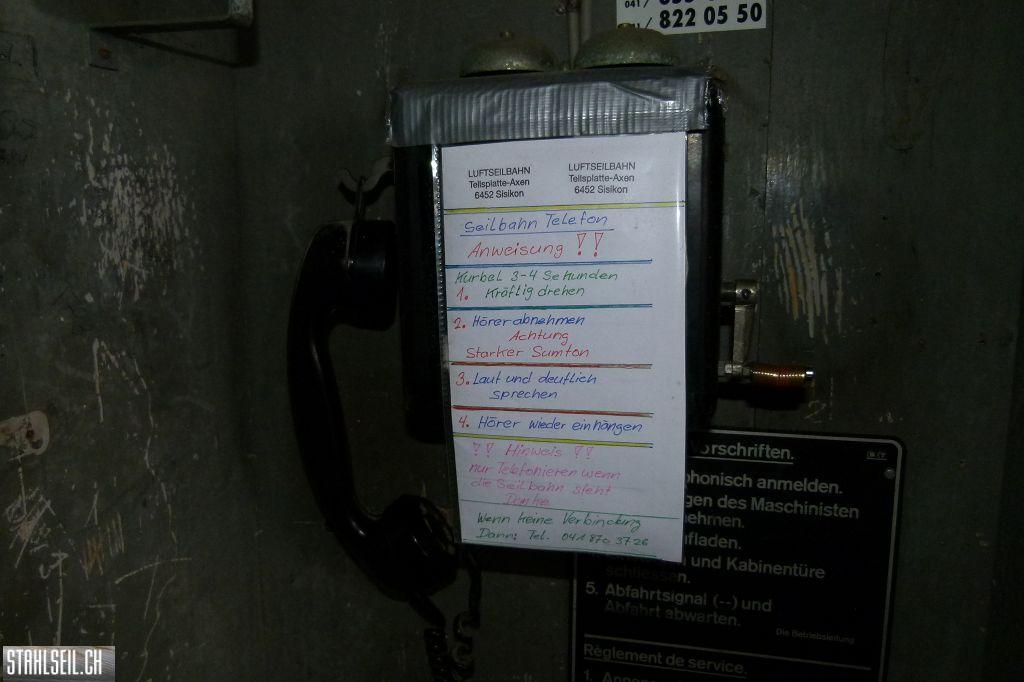 041/
822 05 50
LUFTSEILBAHN
Tellsplatte-Axen
6452 Sisikon
LUFTSEILBAHN
Tellsplatte-Axen
6452 Sisikon
Seilbahn Telefon
Anweisung !!
Kurbel 3-4 Sekunden
1. Kräftig drehen
2. Hörer abnehmen
Achtung
Starker Sumton
3. Laut und deutlich
sprechen
4. Hörer wieder einhängen
!! Hinweis !!
nur Telefonieren wenn
die Seilbahn steht
Danke
Wenn keine Verbindung
Dann: Tel. 041 870 37 26
orschriften.
phonisch anmelden.
gen des Maschinisten
ehmen.
fladen.
und Kabinentüre
schliessen.
5. Abfahrtsignal (--) und
Abfahrt abwarten.
Die Betriebsleitung
Règlement de service.
1.
STAHLSEIL.CH